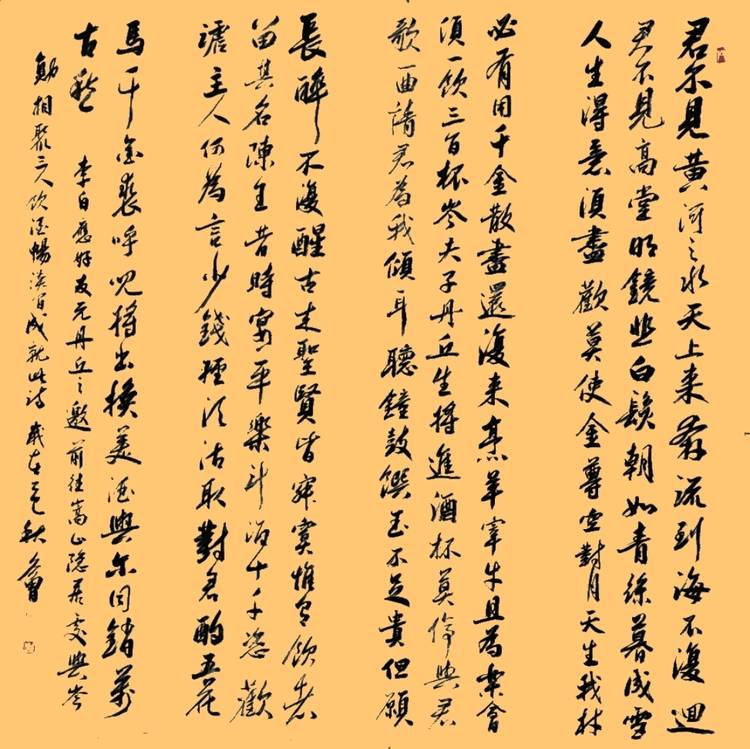 君不見黄河之水天上来奔流到海不復迴
君不見高堂明鏡悲白髮朝如青絲暮成雪
人生得意須盡歡莫使金尊空對月天生我材
必有用千金散盡還復来烹羊宰牛且為樂會
須一飲三百杯岑夫子丹丘生將進酒杯莫停與君
歌一曲請君為我傾耳聽鐘鼓饌玉不足貴但願
長醉不復醒古来聖賢皆寂寞惟有飲者
留其名陳王昔時宴平樂斗酒十千恣歡
謔主人何為言少錢徑須沽取對君酌五花
馬千金裘呼兒將出換美酒與尔同銷萬
古愁 李白應好友元丹丘之邀前往嵩山隱居處與岑
勛相聚三人飲酒暢談成就此詩 歲在秋